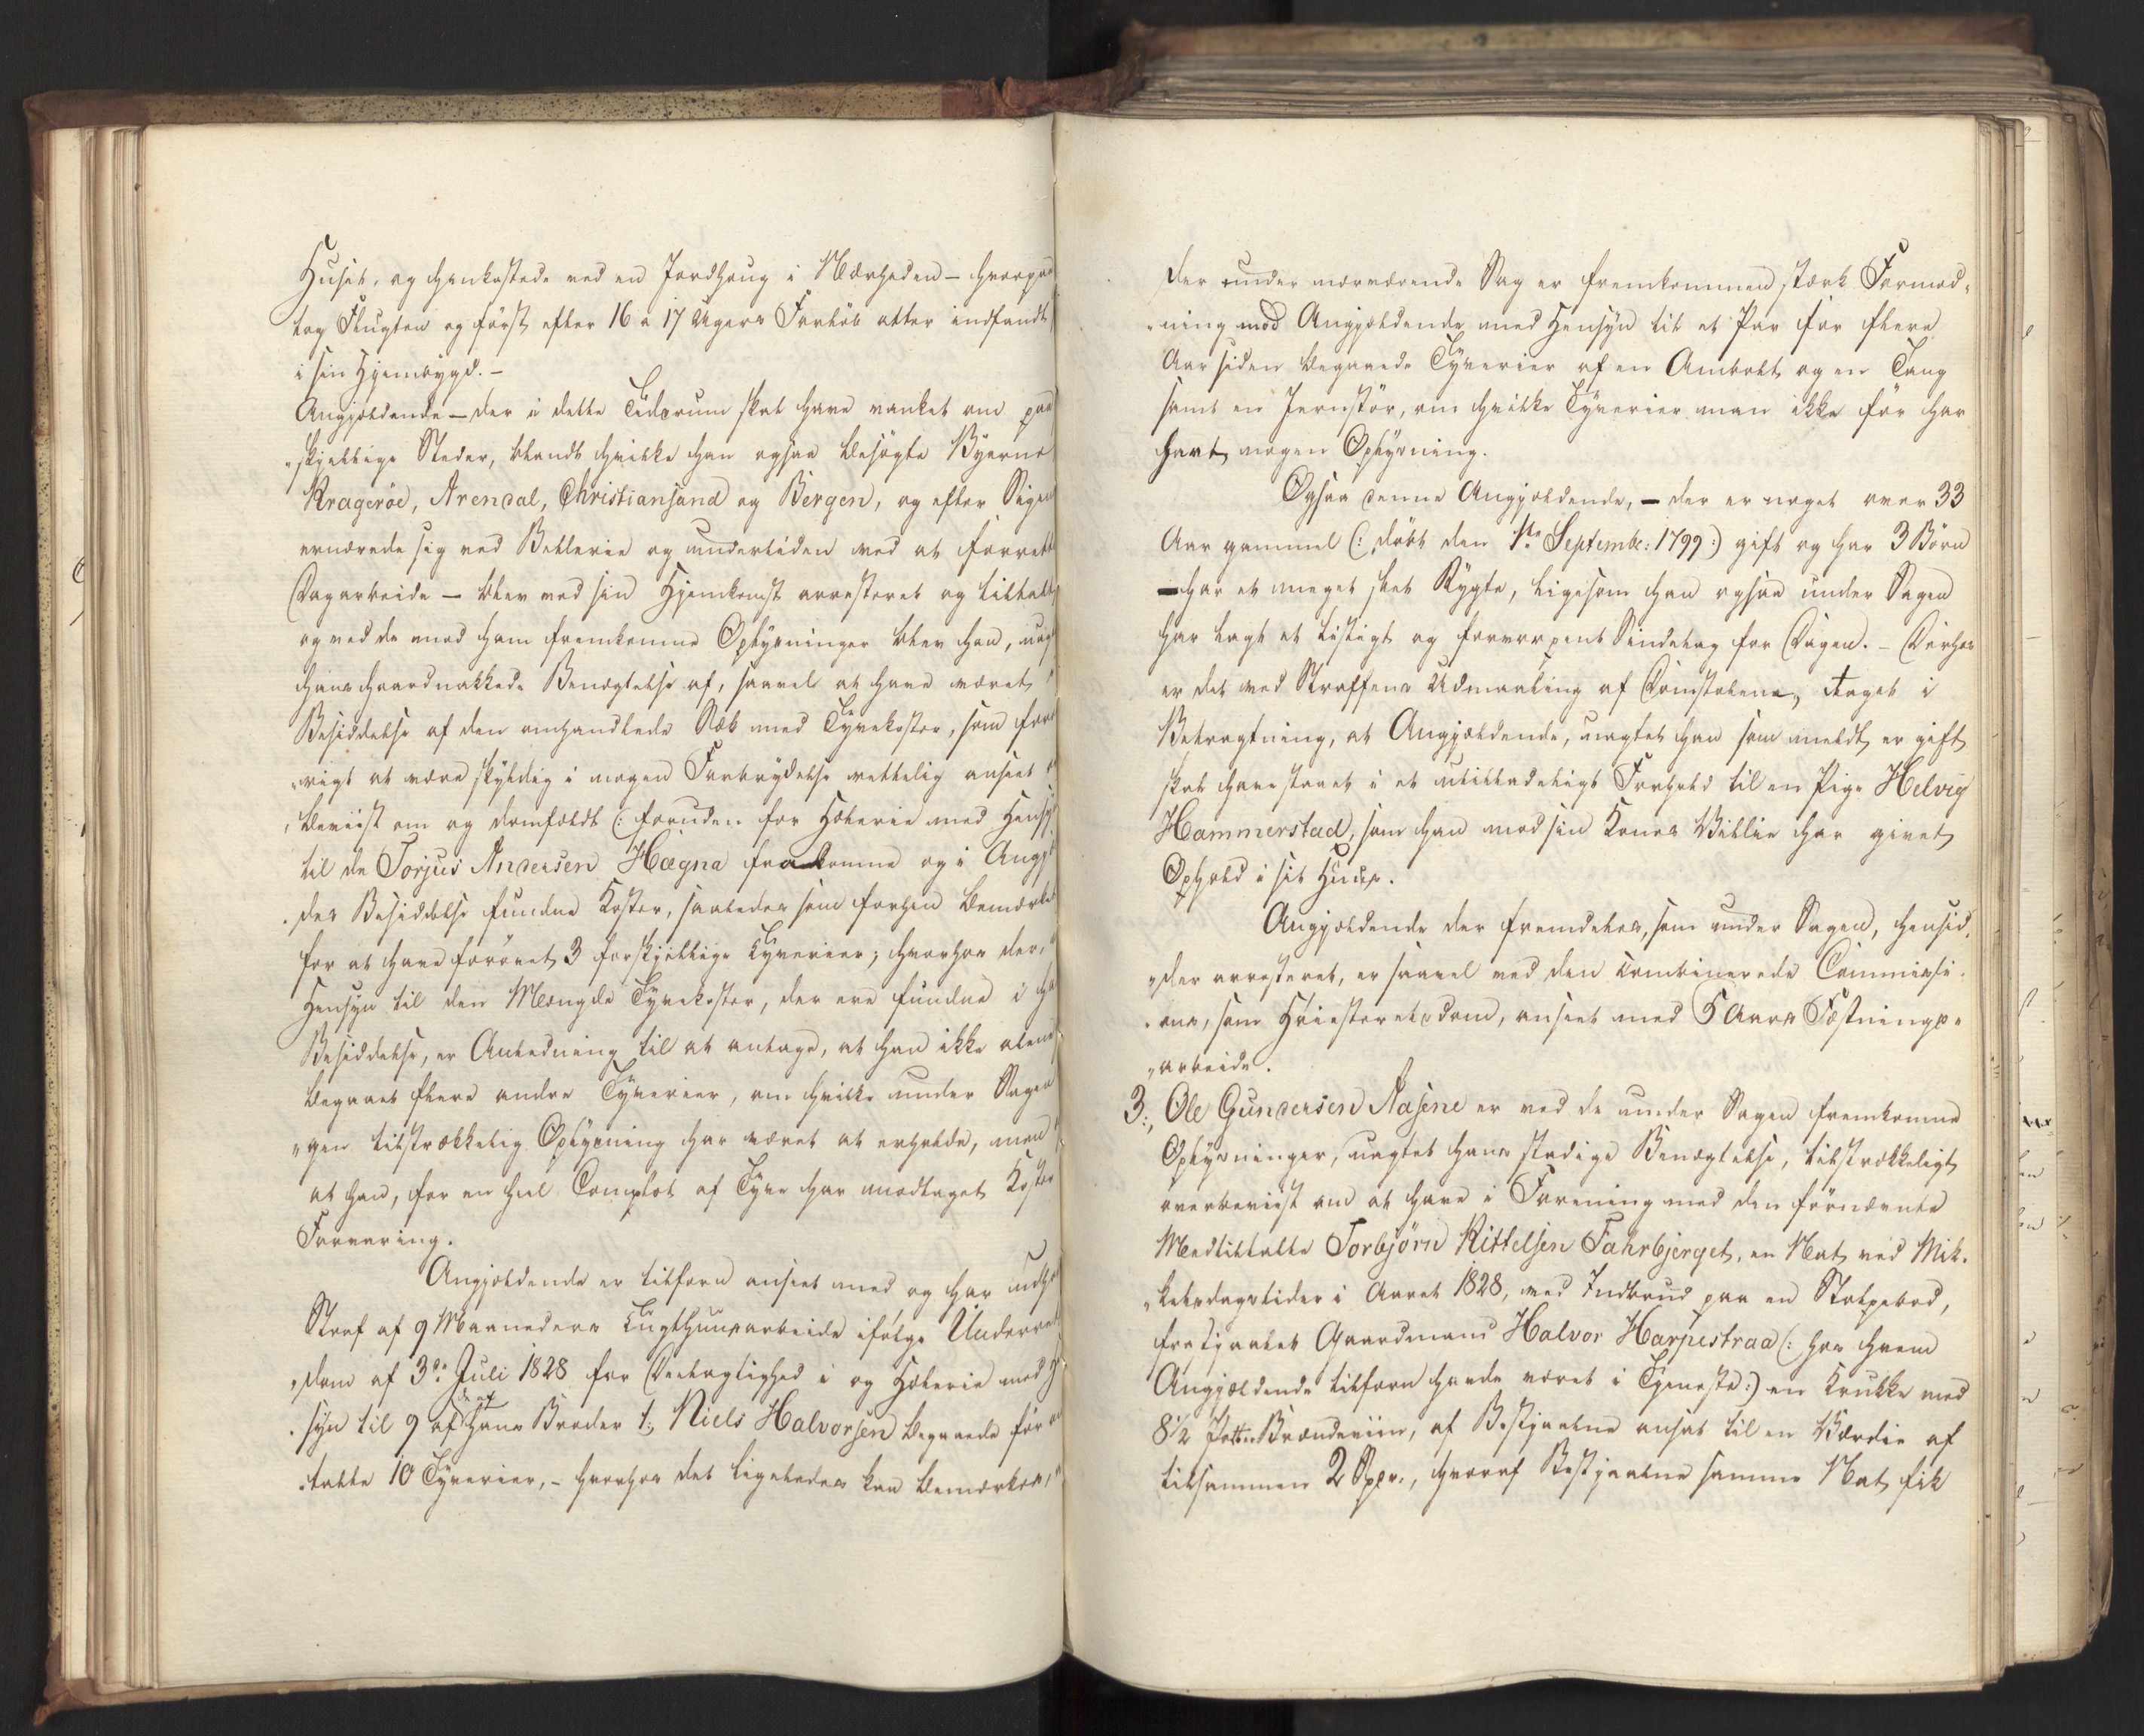 Huset, og henkastede ved en Jordhoug i Nærheden – hvorpaa
tog Flugten og først efter 16 a 17 Ugers Forløb atter indfandt
i sin Hjembygd. –
Angjældende – der i dette Tidsrum skal have vanket om paa
„skjellige Steder, blandt hvilke han ogsaa besøgte Byerne
Kragerøe, Arendal, Christiansand og Bergen, og efter Sigen
ernærede sig ved Betlerie og undertiden ved at forrette
Dagarbeide – blev ved sin Hjemkomst arresteret og tiltalt
og ved de mod ham fremkomne Oplysninger blev han, uagt
hans haardnakkede Benægtelse af, saavel at have været
Besiddelse af den omhandlede Sæk med Tyvekoster, som for
„rigt at være skyldig i nogen Forbrydelse rettelig anseet
„beviist om og domfældt (: foruden for Hæleri med Hensyn
til de Torjus Andersen Hægna frakomne og i Angjæl
„des Besiddelse fundne Koster, saaledes som forhen bemærket
for at have forøvet 3 forskjellige Tyverier; hvorhos der,
Hensyn til den Mængde Tyvekoster, der ere fundne i ha
Besiddelse, er Anledning til at antage, at han ikke alene
begaaet flere andre Tyverier, om hvilke under Sagen
„gen tilstrækkelig Oplysning har været at erholde, men
at han, for en heel Complot af Tyve har modtaget Koster
Forvaring.
Angjældende er tilforn anseet med og har udh
Straf af 9 Maaneders Tugthuusarbeide ifølge Underret
„dom af 3de Juli 1828 for Deelagtighed i og Hæleri med H
„syn til 9 af de af Hans Broder t., Niels Halvorsen begaaede før
„talte 10 Tyverier, – hvorhos det ligeledes kan bemærkes,
der under nærværende Sag er fremkommen stærk Formod„
„ning mod Angjældende med Hensyn til et Par for flere
Aar siden begaaede Tyverier af en Ambolt og en Tang
samt en Jernstør, om hvilke Tyverier man ikke før har
havt nogen Oplysning.
Ogsaa denne Angjældende, – der er noget over 33
Aar gammel (: døbt den 1ste Septembr: 1799 :) gift og har 3 Børn
– har et meget slet Rygte, ligesom han ogsaa under Sagen
har lagt et listigt og forvorpent Sindelag for Dagen. – Derhos
er det ved Straffens Udmaaling af Domstolene, taget i
Betragtning, at Angjældende, uagtet han som meldt er gift
skal have staaet i et utilladeligt Forhold til en Pige Helvig
Hammerstad, som han mod sin Kones Villie har givet
Ophold i sit Huus.
Angjældende der fremdeles, som under Sagen, hensid„
„der arresteret, er saavel ved den combinerede Commissi„
„ons, som Høiesteretsdom, anseet med 5 Aars Fæstnings„
„arbeide.
3., Ole Gundersen Aasene er ved de under Sagen fremkomne
Oplysninger, uagtet hans stadige Benægtelse, tilstrækkeligt
overbeviist om at have i Forening med den førnævnte
Medtiltalte Torbjørn Kittelsen Fahrbjerget, en Nat ved Mik„
„kelsdagstider i Aaret 1828, ved Indbrud paa en Stolpebod,
frastjaalet Gaardmand Halvor Harpestraa (: hos hvem
Angjældende tilforn havde været i Tjeneste :) en Krukke med
8½ Potter Brændeviin, af Bestjaalne ansat til en Værdie af
tilsammen 2 Spdr., hvoraf Bestjaalne samme Nat fik